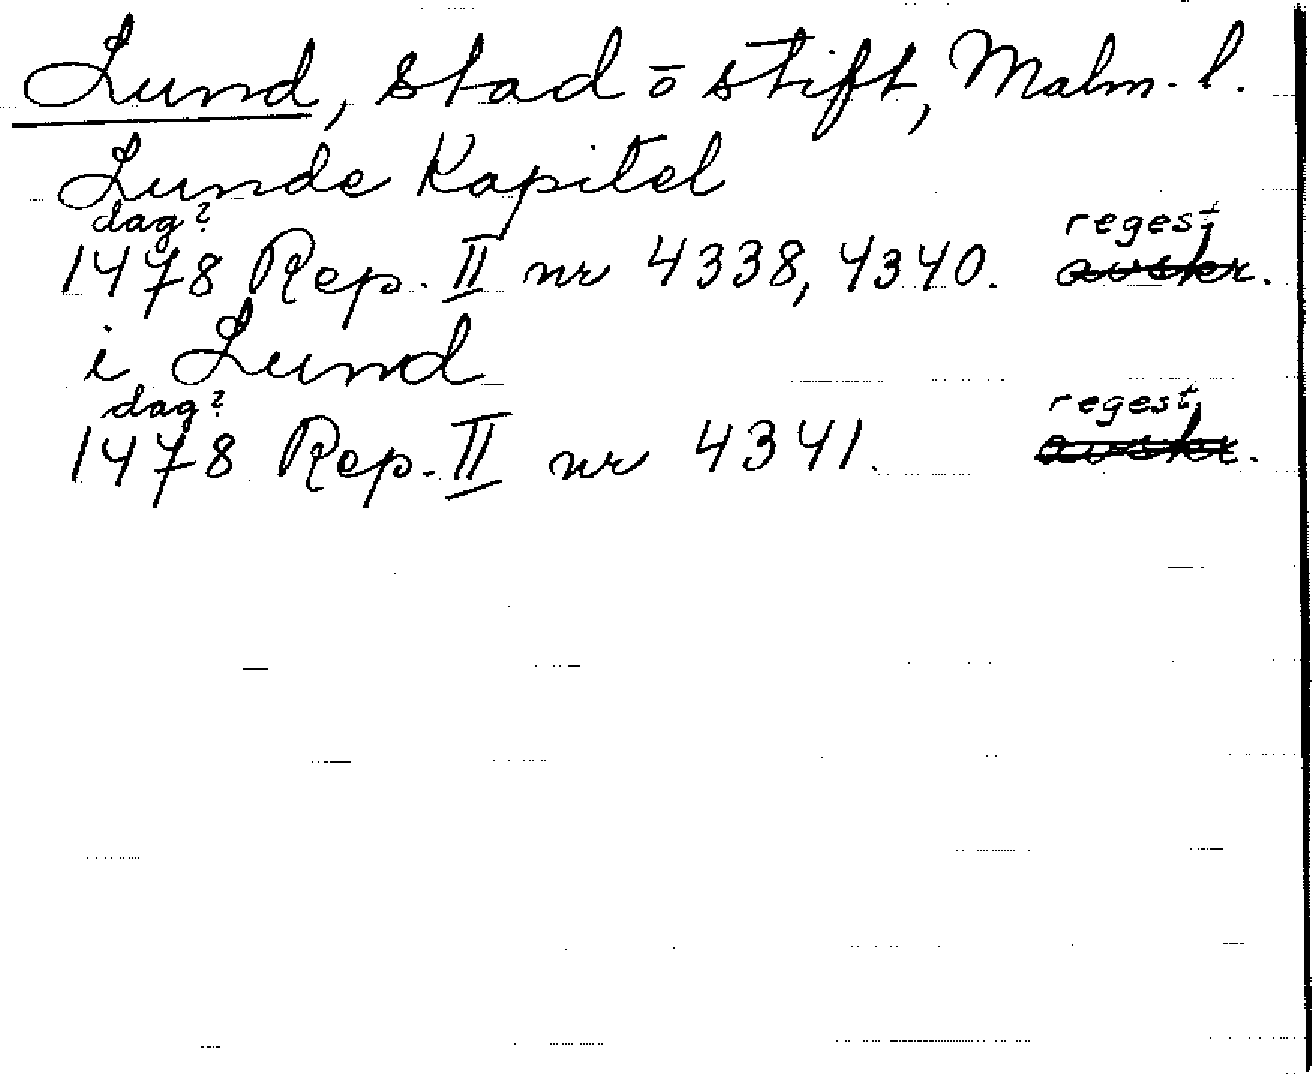 Lund, stad ō stift, Malm. l.
Lunde Kapitel
dag?
1478 Rep. II nr 4338, 4340. regest
avskr.
i Lund
dag?
1478 Rep. II nr 4341. regest
avskr.